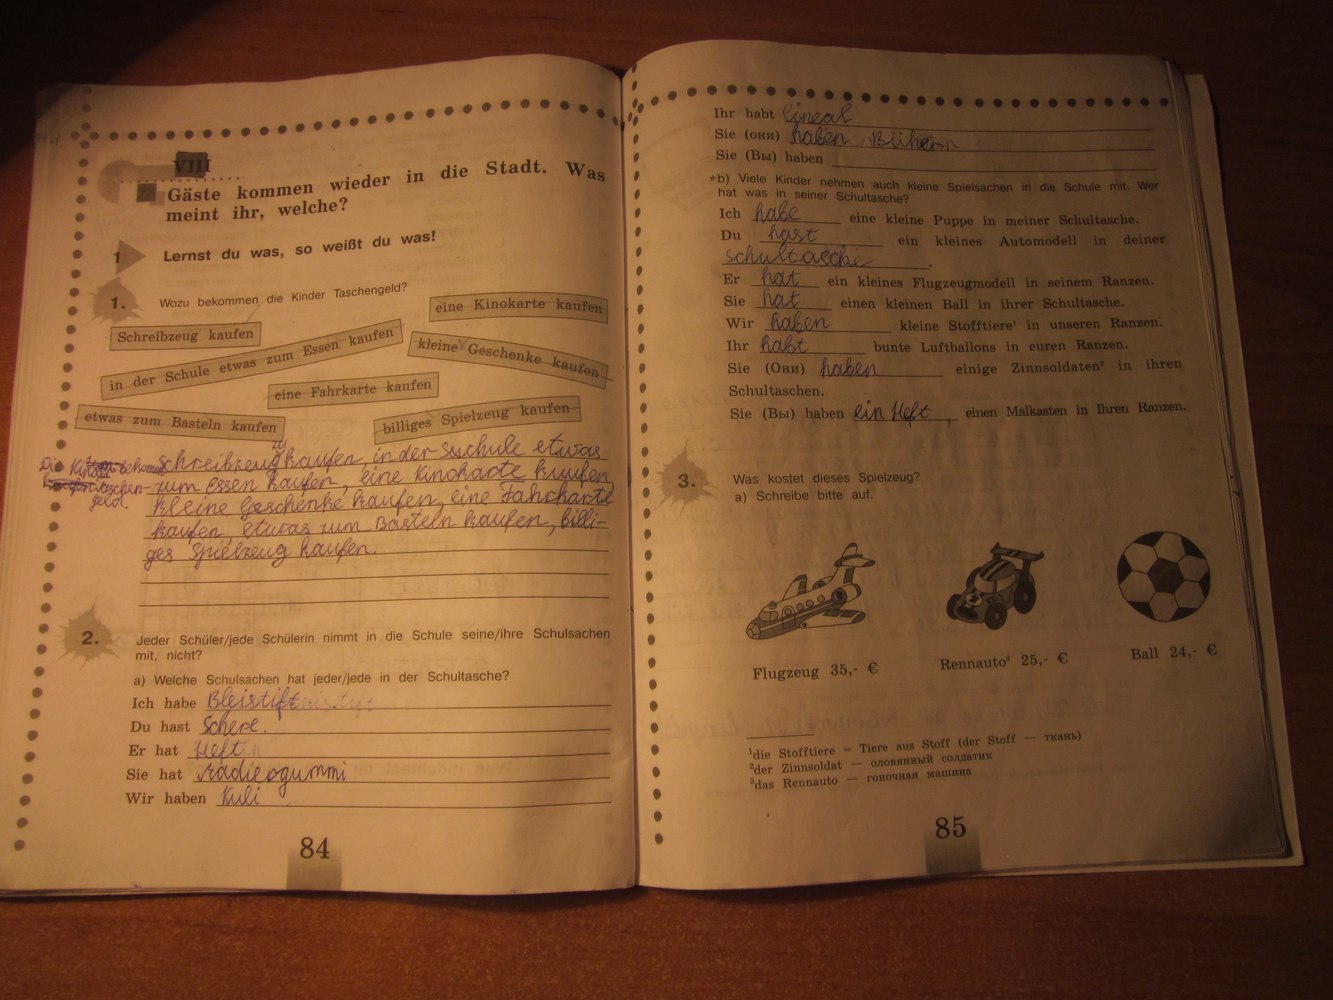 VIII
Gäste kommen wieder in die Stadt. Was
meint ihr, welche?
1 Lernst du was, so weißt du was!
1. Wozu bekommen die Kinder Taschengeld?
eine Kinokarte kaufen
Schreibzeug kaufen
in der Schule etwas zum Essen kaufen
kleine Geschenke kaufen
eine Fahrkarte kaufen
etwas zum Basteln kaufen
billiges Spielzeug kaufen
zu
Die bekommen Schreibzeug kaufen, in der Sschule etwas
Taschen- zum Essen kaufen, eine Kinokarte kaufen,
geld. kleine Geschenke kaufen, eine Fahrkarte
kaufen, etwas zum Basteln kaufen, billi-
ges Spielzeug kaufen.
2. Jeder Schüler/jede Schülerin nimmt in die Schule seine/ihre Schulsachen
mit, nicht?
a) Welche Schulsachen hat jeder/jede in der Schultasche?
Ich habe Bleistift
Du hast Schere.
Er hat Heft
Sie hat Radiergummi
Wir haben Kuli
84
Ihr habt lineal
Sie (они) haben
Sie (Вы) haben
*b) Viele Kinder nehmen auch kleine Spielsachen in die Schule mit. Wer
hat was in seiner Schultasche?
Ich habe eine kleine Puppe in meiner Schultasche.
Du hast ein kleines Automodell in deiner
schultasche.
Er hat ein kleines Flugzeugmodell in seinem Ranzen.
Sie hat einen kleinen Ball in ihrer Schultasche.
Wir haben kleine Stofftiere¹ in unseren Ranzen.
Ihr habt bunte Luftballons in euren Ranzen.
Sie (Они) haben einige Zinnsoldaten² in ihren
Schultaschen.
Sie (Вы) haben ein Heft, einen Malkasten in Ihren Ranzen.
3. Was kostet dieses Spielzeug?
a) Schreibe bitte auf.
Flugzeug 35,- €
Rennauto³ 25,- €
Ball 24,- €
¹die Stofftiere = Tiere aus Stoff (der Stoff — ткань)
²der Zinnsoldat — оловянный солдатик
³das Rennauto — гоночная машина
85